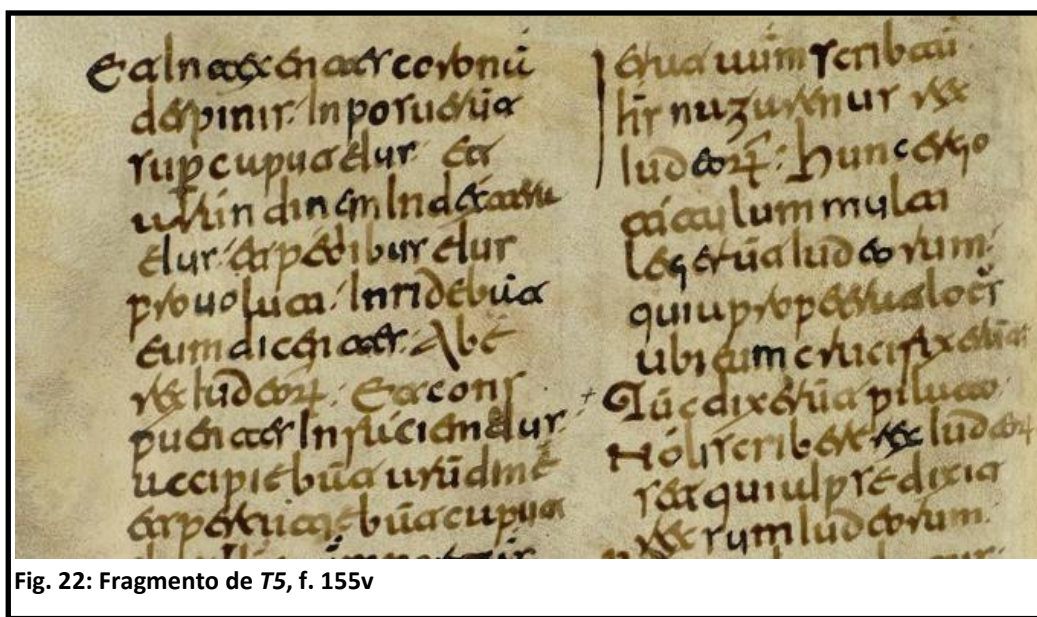 Et Intexentes coronā
de spinis. Inposuerūt
sup caput eius. Et
arundinem In dextera
eius. et pedibus eius
provoluti. Inridebāt
eum dicentes. Abe
rex Iudeoꝝ. Et cons
puentes In faciem eius.
accipiebāt arūdinē
et percutiebāt caput
erat aūm scribtū
Ihs nazarenus rex
Iudeoꝝ. Hunc ergo
titulum multi
legerūt Iudeorum.
quia prope erat locus
ubi eum crucifixerūt
Tūc dixerūt pilato
Noli scribere rex Iudeoꝝ
set quia Ipse dixit
rex sum Iudeorum.
Fig. 22: Fragmento de T5, f. 155v